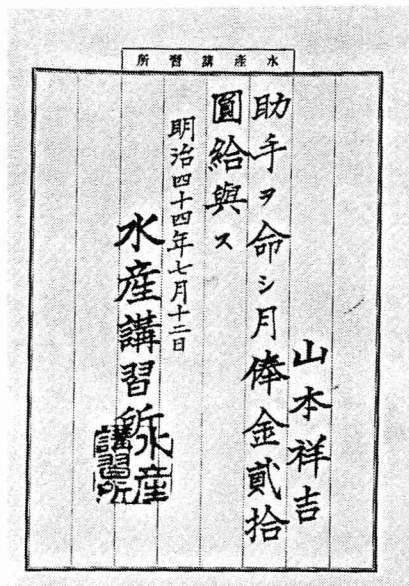 水產講習所
山本祥吉
助手ヲ命シ月俸金貳拾
圓給與ス
明治四十四年七月十二日
水產講習所
水產
講習所